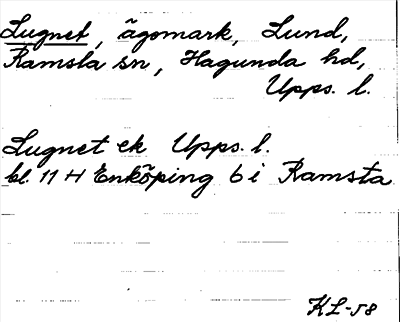 Lugnet, ägomark, Lund,
Ramsta sn, Hagunda hd,
Upps. l.
Lugnet ek Upps. l.
bl. 11 H Enköping 6 i Ramsta
KL-58